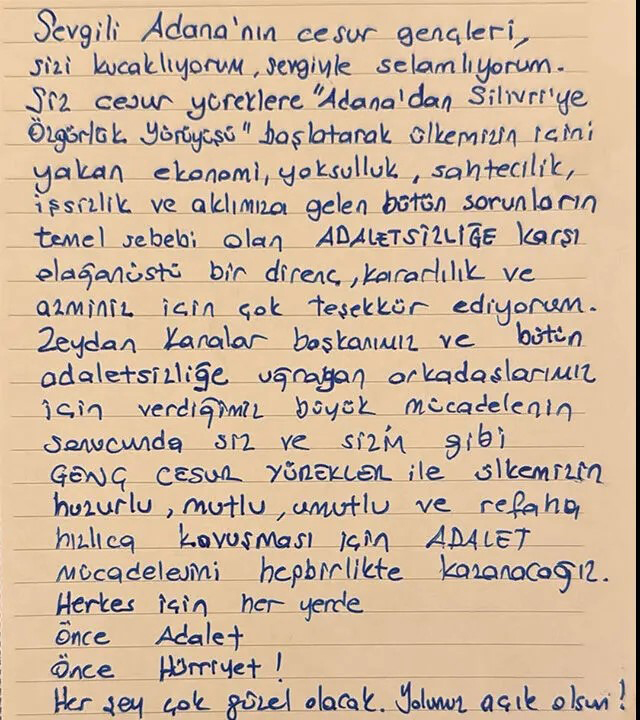 Sevgili Adana'nın cesur gençleri,
sizi kucaklıyorum, sevgiyle selamlıyorum.
Siz cesur yüreklere "Adana'dan Silivri'ye
Özgürlük Yürüyüşü" başlatarak ülkemizin içini
yakan ekonomi, yoksulluk, sahtecilik,
işsizlik ve aklımıza gelen bütün sorunların
temel sebebi olan ADALETSİZLİĞE karşı
olağanüstü bir direnç, kararlılık ve
azminiz için çok teşekkür ediyorum.
Zeydan Karalar başkanımız ve bütün
adaletsizliğe uğrayan arkadaşlarımız
için verdiğimiz büyük mücadelenin
sonucunda siz ve sizin gibi
GENÇ CESUR YÜREKLER ile ülkemizin
huzurlu, mutlu, umutlu ve refaha
hızlıca kavuşması için ADALET
mücadelesini hepbirlikte kazanacağız.
Herkes için her yerde
Önce Adalet
Önce Hürriyet!
Her şey çok güzel olacak. Yolunuz açık olsun!